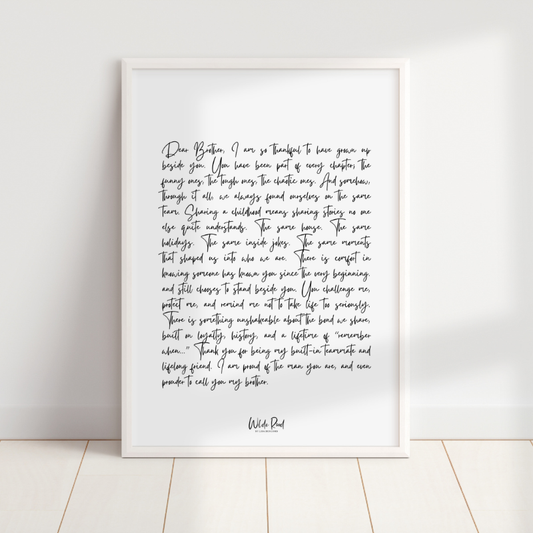 Dear Brother, I am so thankful to have grown up
beside you. You have been part of every chapter; the
funny ones, the tough ones, the chaotic ones. And somehow,
through it all, we always found ourselves on the same
team. Sharing a childhood means sharing stories no one
else quite understands. The same house. The same
holidays. The same inside jokes. The same moments
that shaped us into who we are. There is comfort in
knowing someone has known you since the very beginning,
and still chooses to stand beside you. You challenge me,
protect me, and remind me not to take life too seriously.
There is something unshakeable about the bond we share,
built on loyalty, history, and a lifetime of “remember
when...” Thank you for being my built-in teammate and
lifelong friend. I am proud of the man you are, and even
prouder to call you my brother.